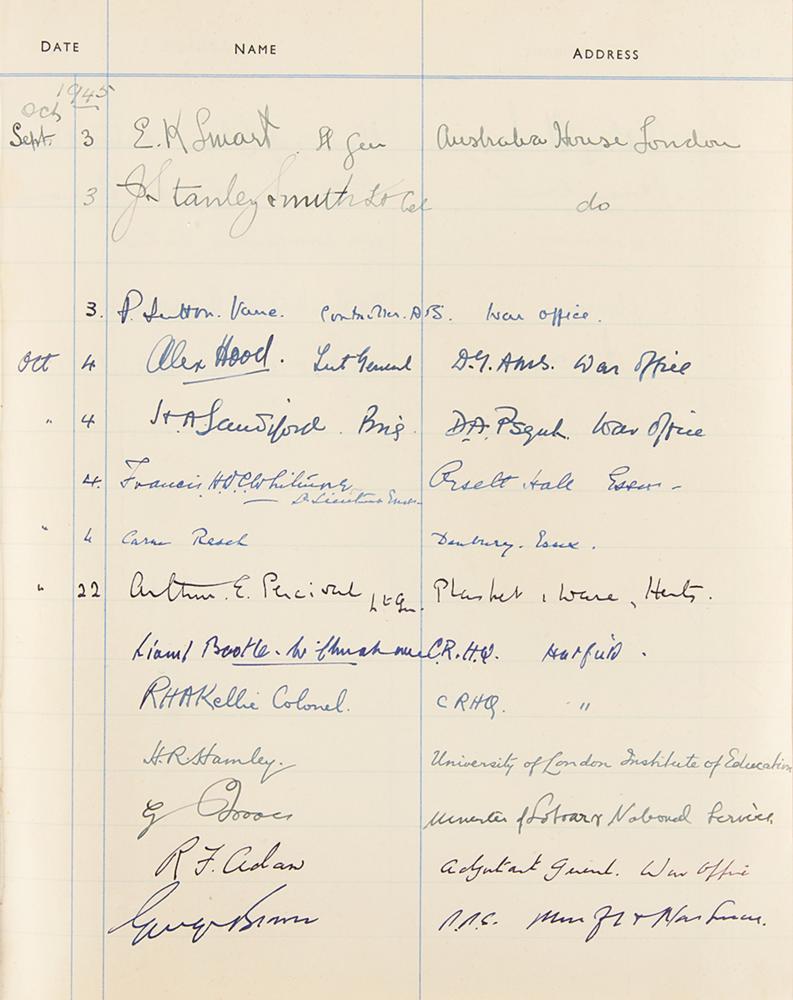 DATE NAME ADDRESS
1945
Oct
Sept. 3 E. K Smart Lt Gen Australia House London
3 J. Stanley Smith Lt Col do
3. P. Sutton. Vane. Controller. A.B.S. War office.
Oct 4 Alex Hood. Lieut General D.G. AMS. War Office
" 4 H A Sandiford. Brig D.A. Psych. War Office
4. Francis H.D.C. Whitmore Orsett Hall Essex -
Ld Lieutenant Essex -
" 4 Danbury. Essex.
" 22 Arthur. E. Percival Lt Gen. , Ware, Herts.
Lionel Bootle-Wilbraham C.R.H.Q. Hatfield.
RHAKellie Colonel. CRHQ. "
H.R.Hamley. University of London Institute of Education
G Isaacs Minister of Labour & National Service,
R F. Adam Adjutant General. War Office
George Brown P.P.S. Min of L & Nat Service.